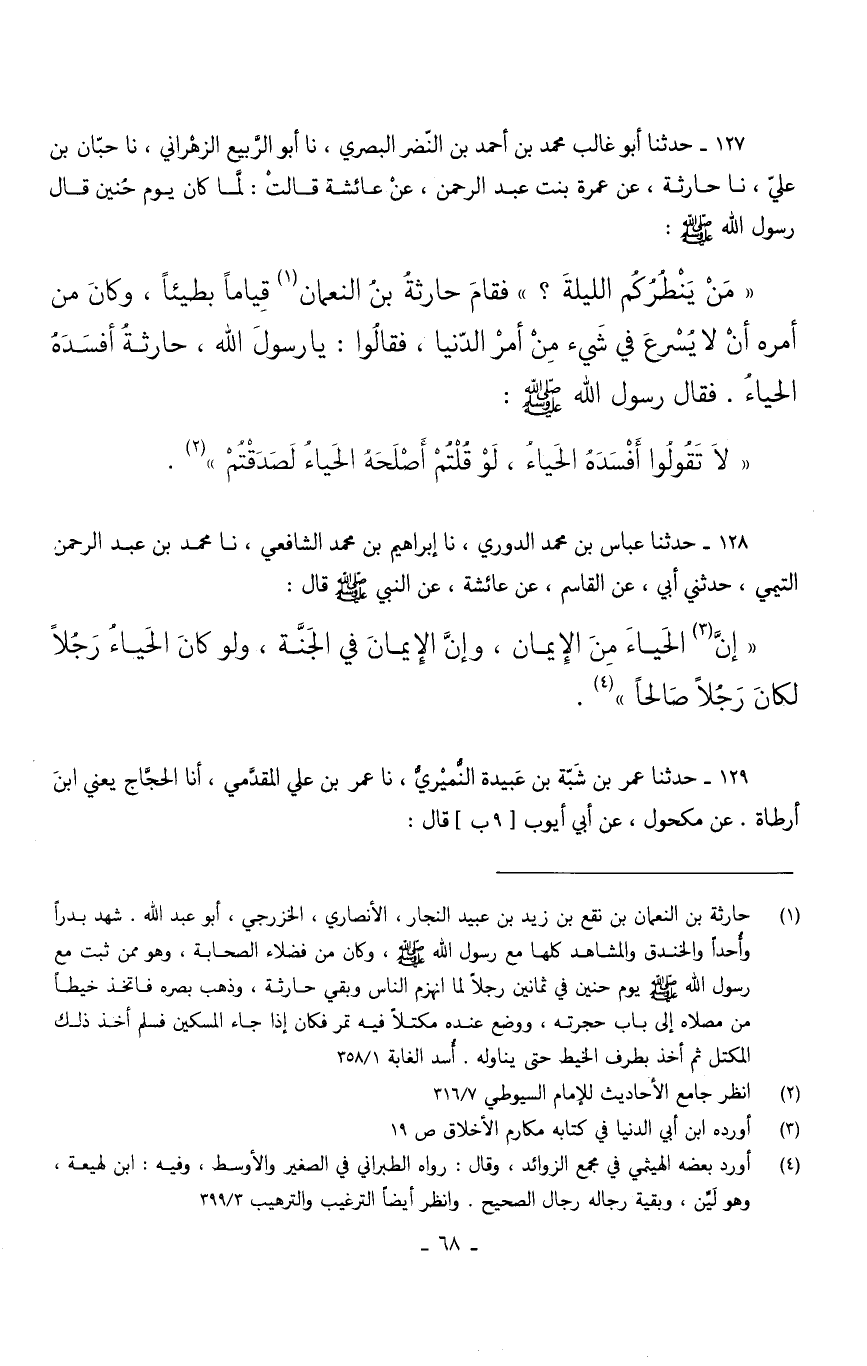 ١٢٧ ـ حدثنا أبو غالب محمد بن أحمد بن النّضر البصري ، نا أبو الرَّبيع الزهْراني ، نا حبّان بن
عليّ ، نـا حارثـة ، عن عمرة بنت عبـد الرحمن ، عنْ عـائشـة قـالتْ : لَّمـا كان يـوم حُنين قـال
رسول الله ﷺ :
« مَنْ يَنْطُرُكُم الليلةَ ؟ » فقامَ حارثةُ بنُ النعمان(١) قِياماً بطيئاً ، وكانَ من
أمره أنْ لا يُسْرعَ في شَيء مِنْ أمرْ الدّنيا ، فقالُوا : يارسولَ الله ، حارثـةُ أفسَـدَهُ
الحياءُ . فقال رسول الله ﷺ :
« لاَ تَقُولُوا أَفْسَدَهُ الحَياءُ ، لَوْ قُلْتُمْ أَصْلَحَهُ الحَياءُ لَصَدَقْتُمْ »(٢) .
١٢٨ ـ حدثنا عباس بن محمد الدوري ، نا إبراهيم بن محمد الشافعي ، نـا محمـد بن عبـد الرحمن
التيمي ، حدثني أبي ، عن القاسم ، عن عائشة ، عن النبي ﷺ قال :
« إنَّ(٣) الحَيـاءَ مِنَ الإِيمـان ، وإنَّ الإِيمـانَ في الجَنَّـة ، ولو كانَ الحَيـاءُ رَجُلاً
لكانَ رَجُلاً صَالحاً »(٤) .
١٢٩ ـ حدثنا عمر بن شَبّة بن عَبيدة النُّميْريُّ ، نا عمر بن علي المقدَّمي ، أنا الحجَّاج يعني ابنَ
أرطاة . عن مكحول ، عن أبي أيوب [ ٩ ب ] قال :
(١) حارثة بن النعمان بن نقع بن زيد بن عبيد النجار ، الأنصاري ، الخزرجي ، أبو عبد الله . شهد بـدراً
وأُحداً والخندق والمشاهد كلها مع رسول الله ﷺ ، وكان من فضلاء الصحابـة ، وهو ممن ثبت مع
رسول الله ﷺ يوم حنين في ثمانين رجلاً لما انهزم الناس وبقي حـارثـة ، وذهب بصره فـاتخـذ خيطـاً
من مصلاه إلى بـاب حجرتـه ، ووضع عنـده مكتـلاً فيـه تمر فكان إذا جـاء المسكين فسلم أخـذ ذلـك
المكتل ثم أخذ بطرف الخيط حتى يناوله . أُسد الغابة ٣٥٨/١
(٢) انظر جامع الأحاديث للإمام السيوطي ٣١٦/٧
(٣) أورده ابن أبي الدنيا في كتابه مكارم الأخلاق ص ١٩
(٤) أورد بعضه الهيثمي في مجمع الزوائد ، وقال : رواه الطبراني في الصغير والأوسط ، وفيـه : ابن لهيعـة ،
وهو لَيِّن ، وبقية رجاله رجال الصحيح . وانظر أيضاً الترغيب والترهيب ٣٩٩/٣
ـ ٦٨ ـ